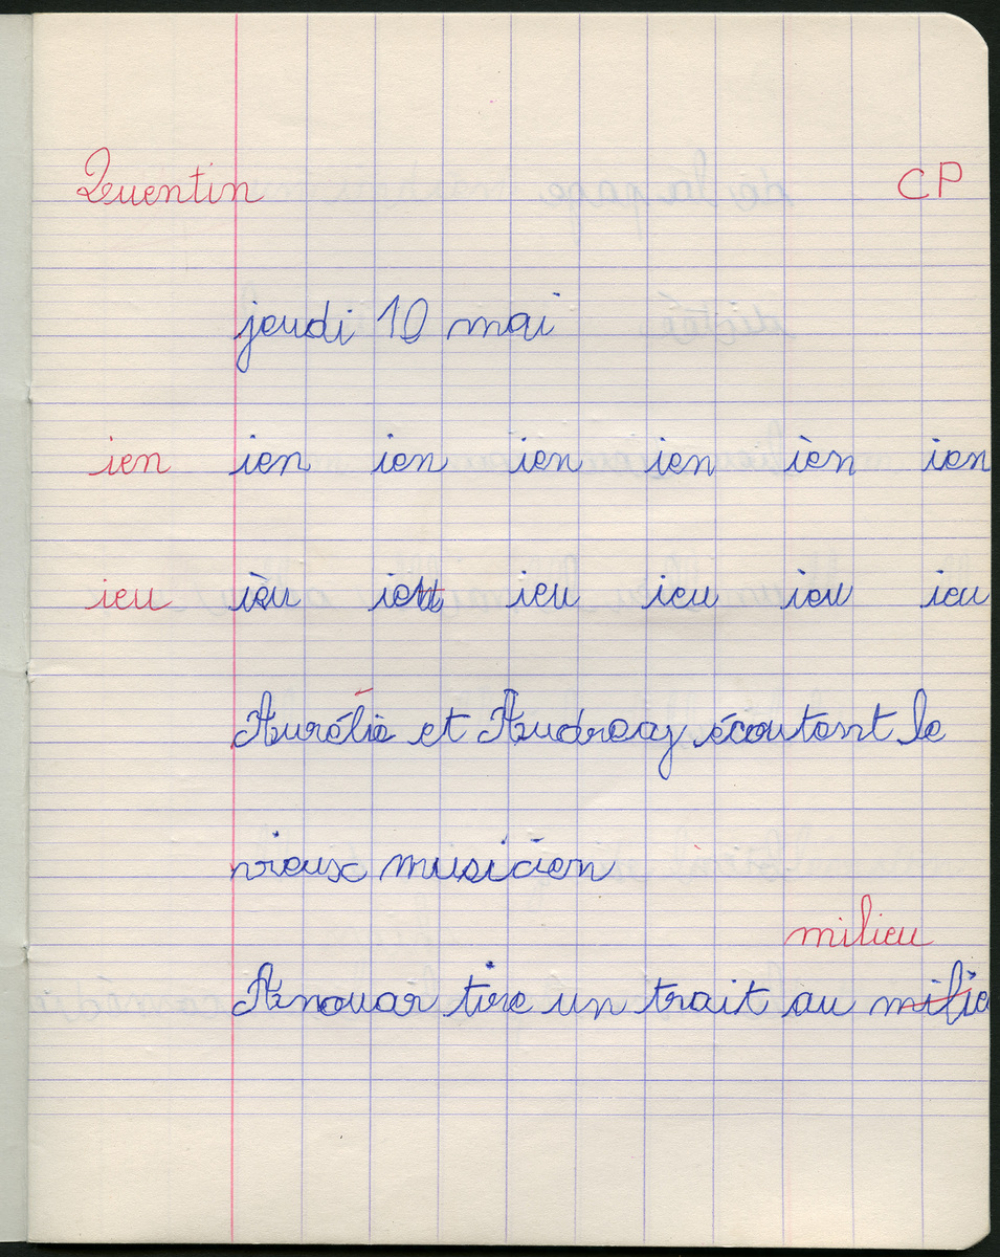 Quentin CP
jeudi 10 mai
ien ien ien ien ien ien ien
ieu ieu ieu ieu ieu ieu ieu
Aurélie et Audrey écoutent le
vieux musicien
milieu
Anouar tire un trait au milie